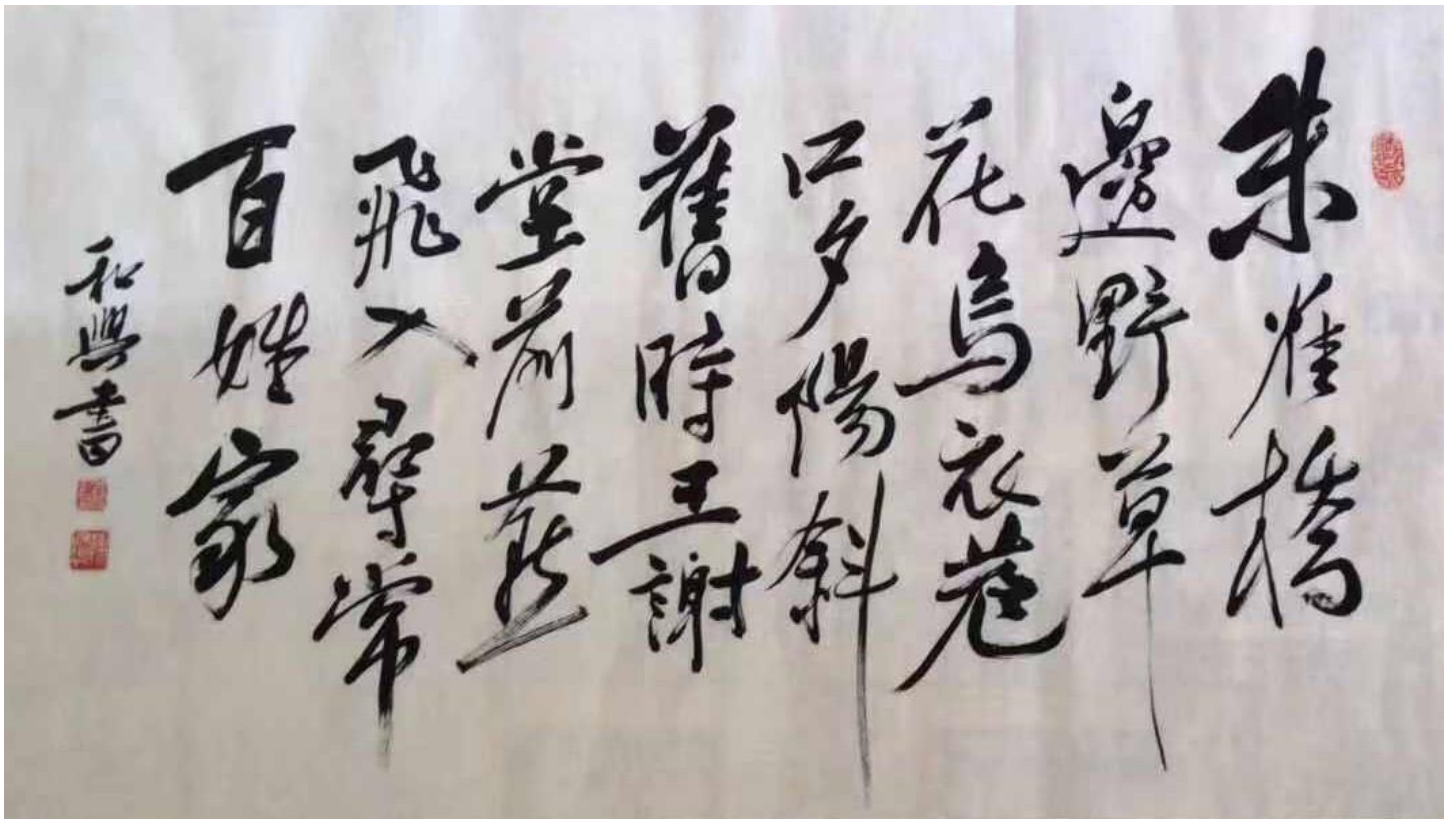 朱雀橋
邊野草
花烏衣巷
口夕陽斜
舊時王謝
堂前燕
飛入尋常
百姓家
和興書